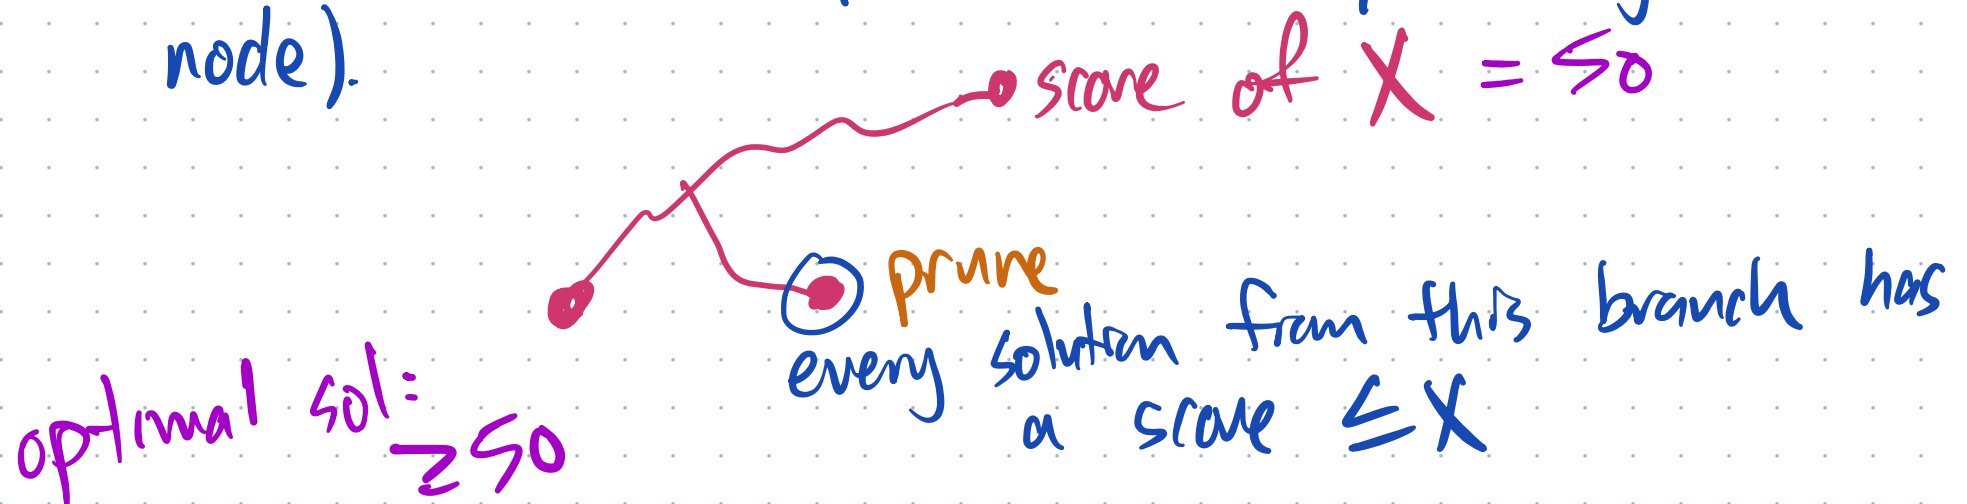 node).
score of X = 50
prune
every solution from this branch has
a score ≤ X
optimal sol:
≥ 50